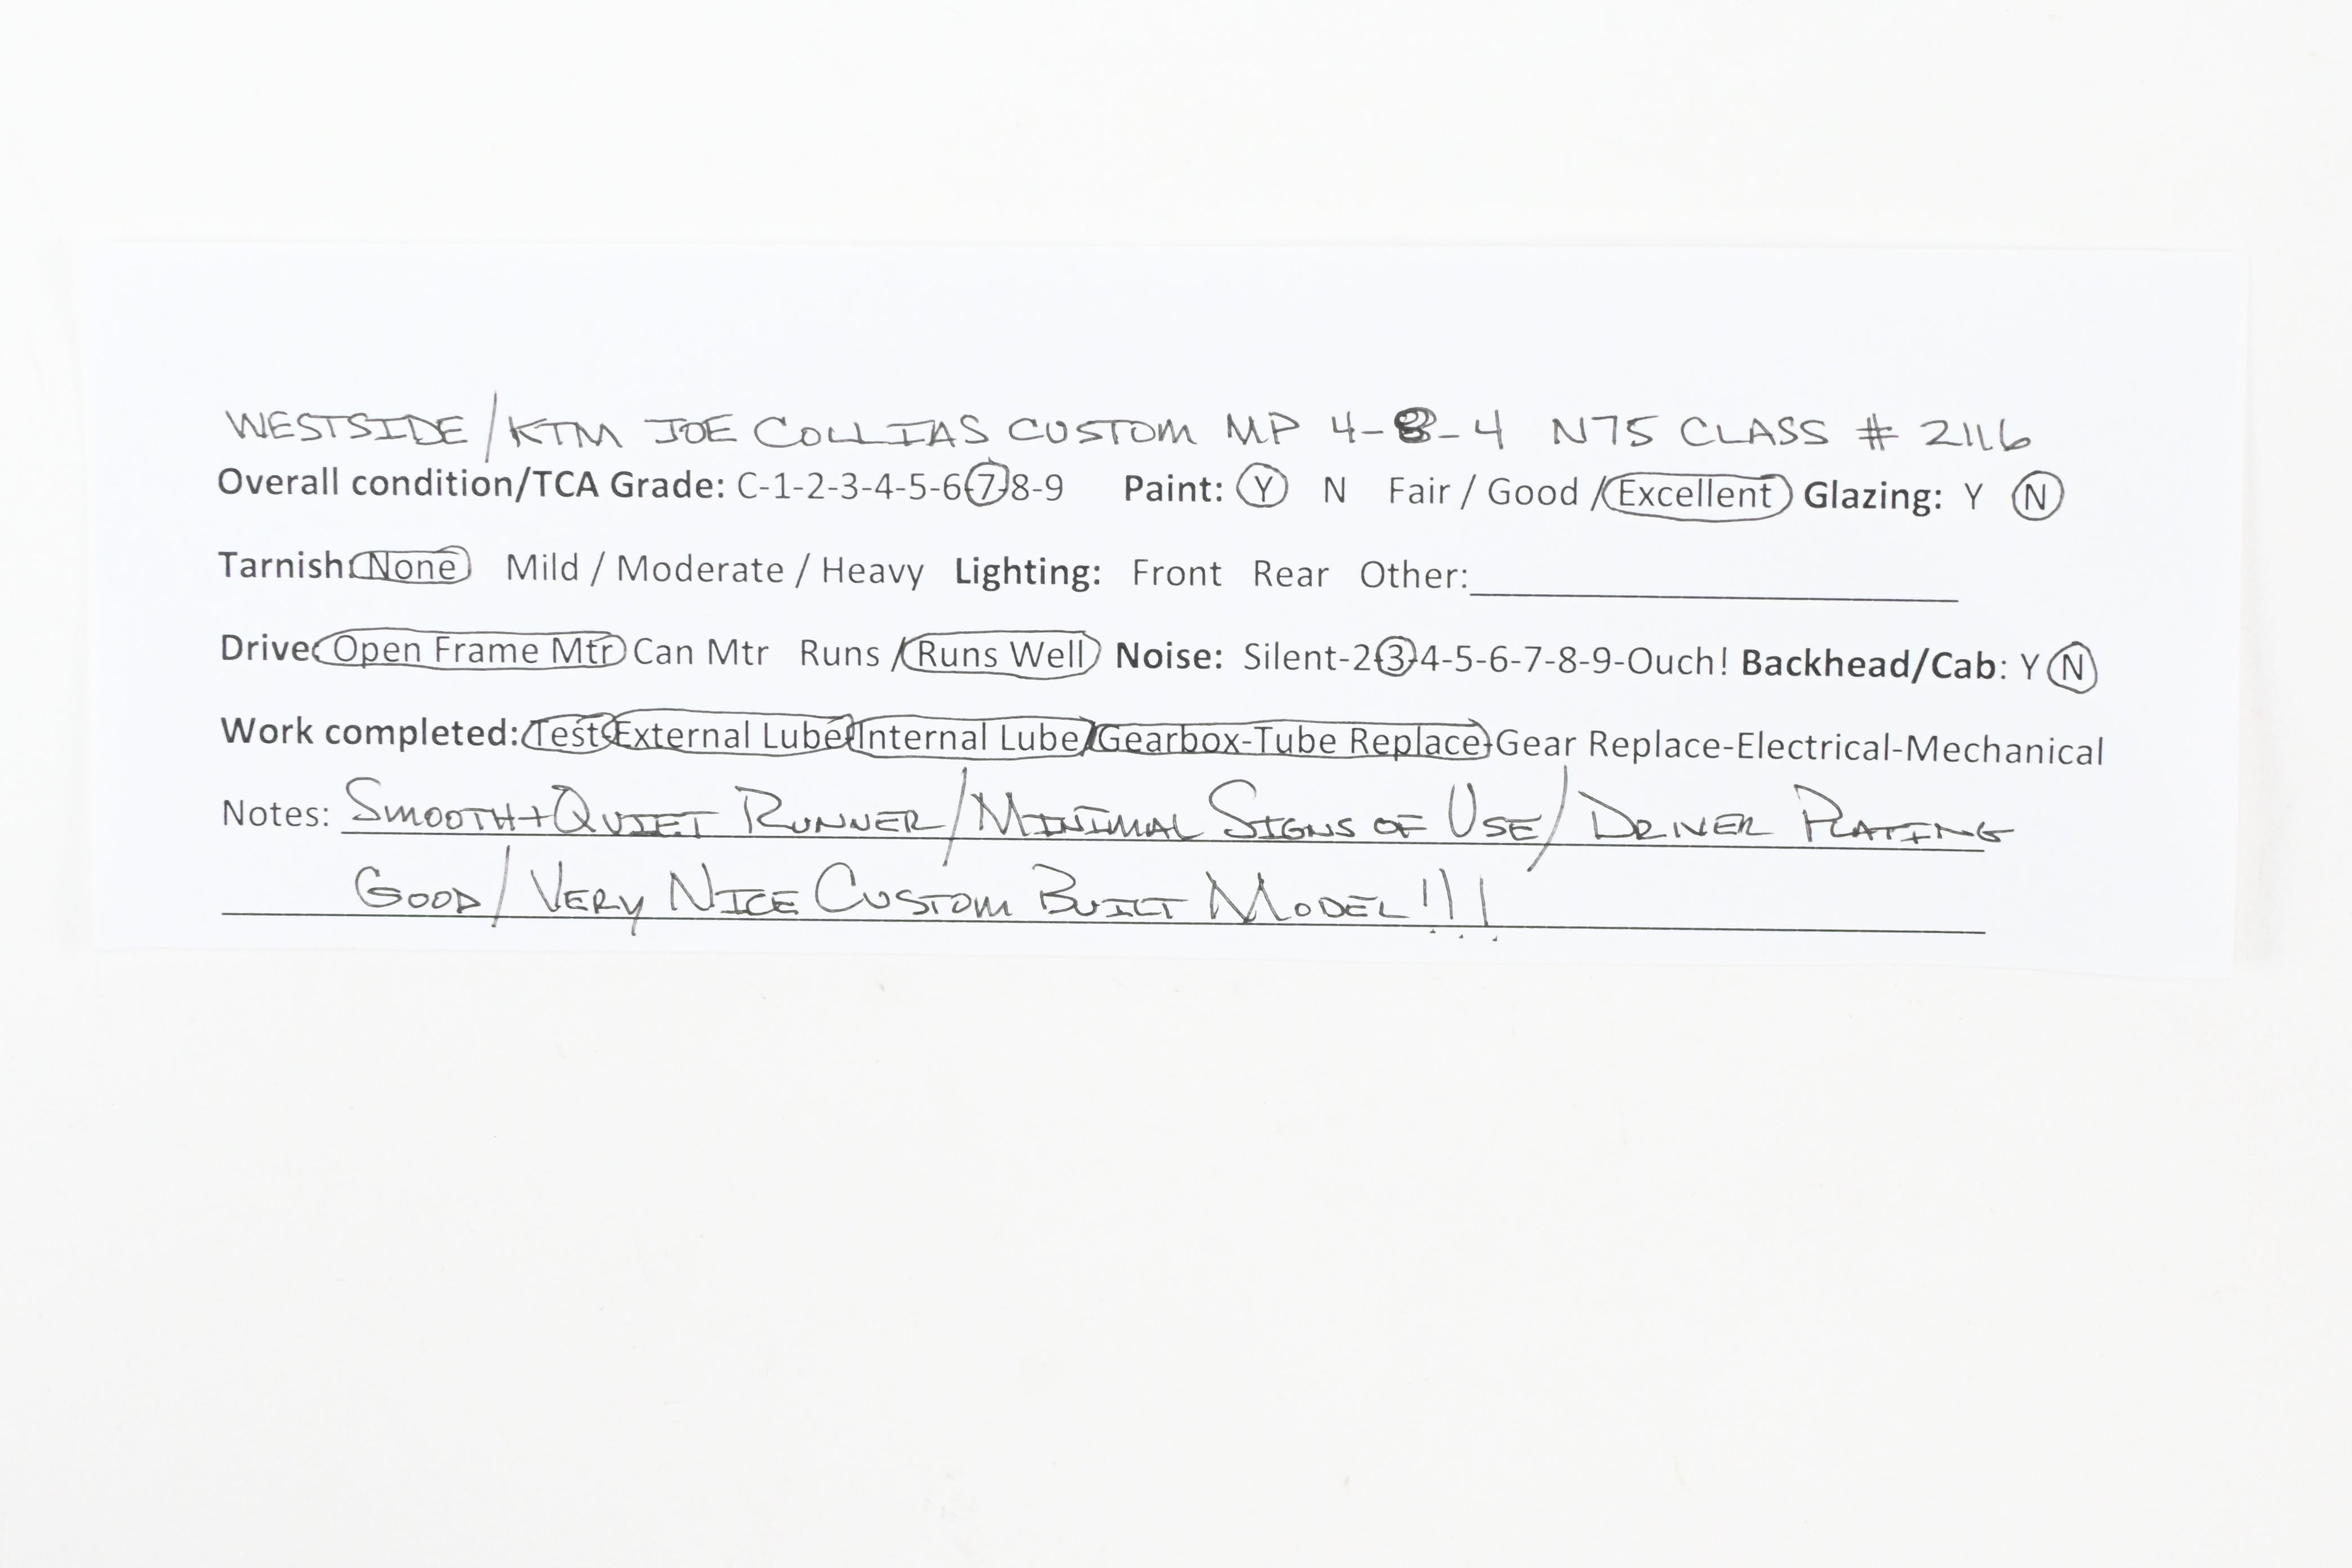 WESTSIDE/KTM JOE COLLIAS CUSTOM MP 4-8-4 N75 CLASS # 2116
Overall condition/TCA Grade: C-1-2-3-4-5-6-7-8-9 Paint: Y N Fair / Good / Excellent Glazing: Y N
Tarnish: None Mild / Moderate / Heavy Lighting: Front Rear Other:
Drive: Open Frame Mtr Can Mtr Runs / Runs Well Noise: Silent-2-3-4-5-6-7-8-9-Ouch! Backhead/Cab: Y N
Work completed: Test-External Lube-Internal Lube/Gearbox-Tube Replace-Gear Replace-Electrical-Mechanical
Notes: SMOOTH+QUIET RUNNER/MINIMAL SIGNS OF USE/DRIVER PLATING
GOOD/VERY NICE CUSTOM BUILT MODEL!!!